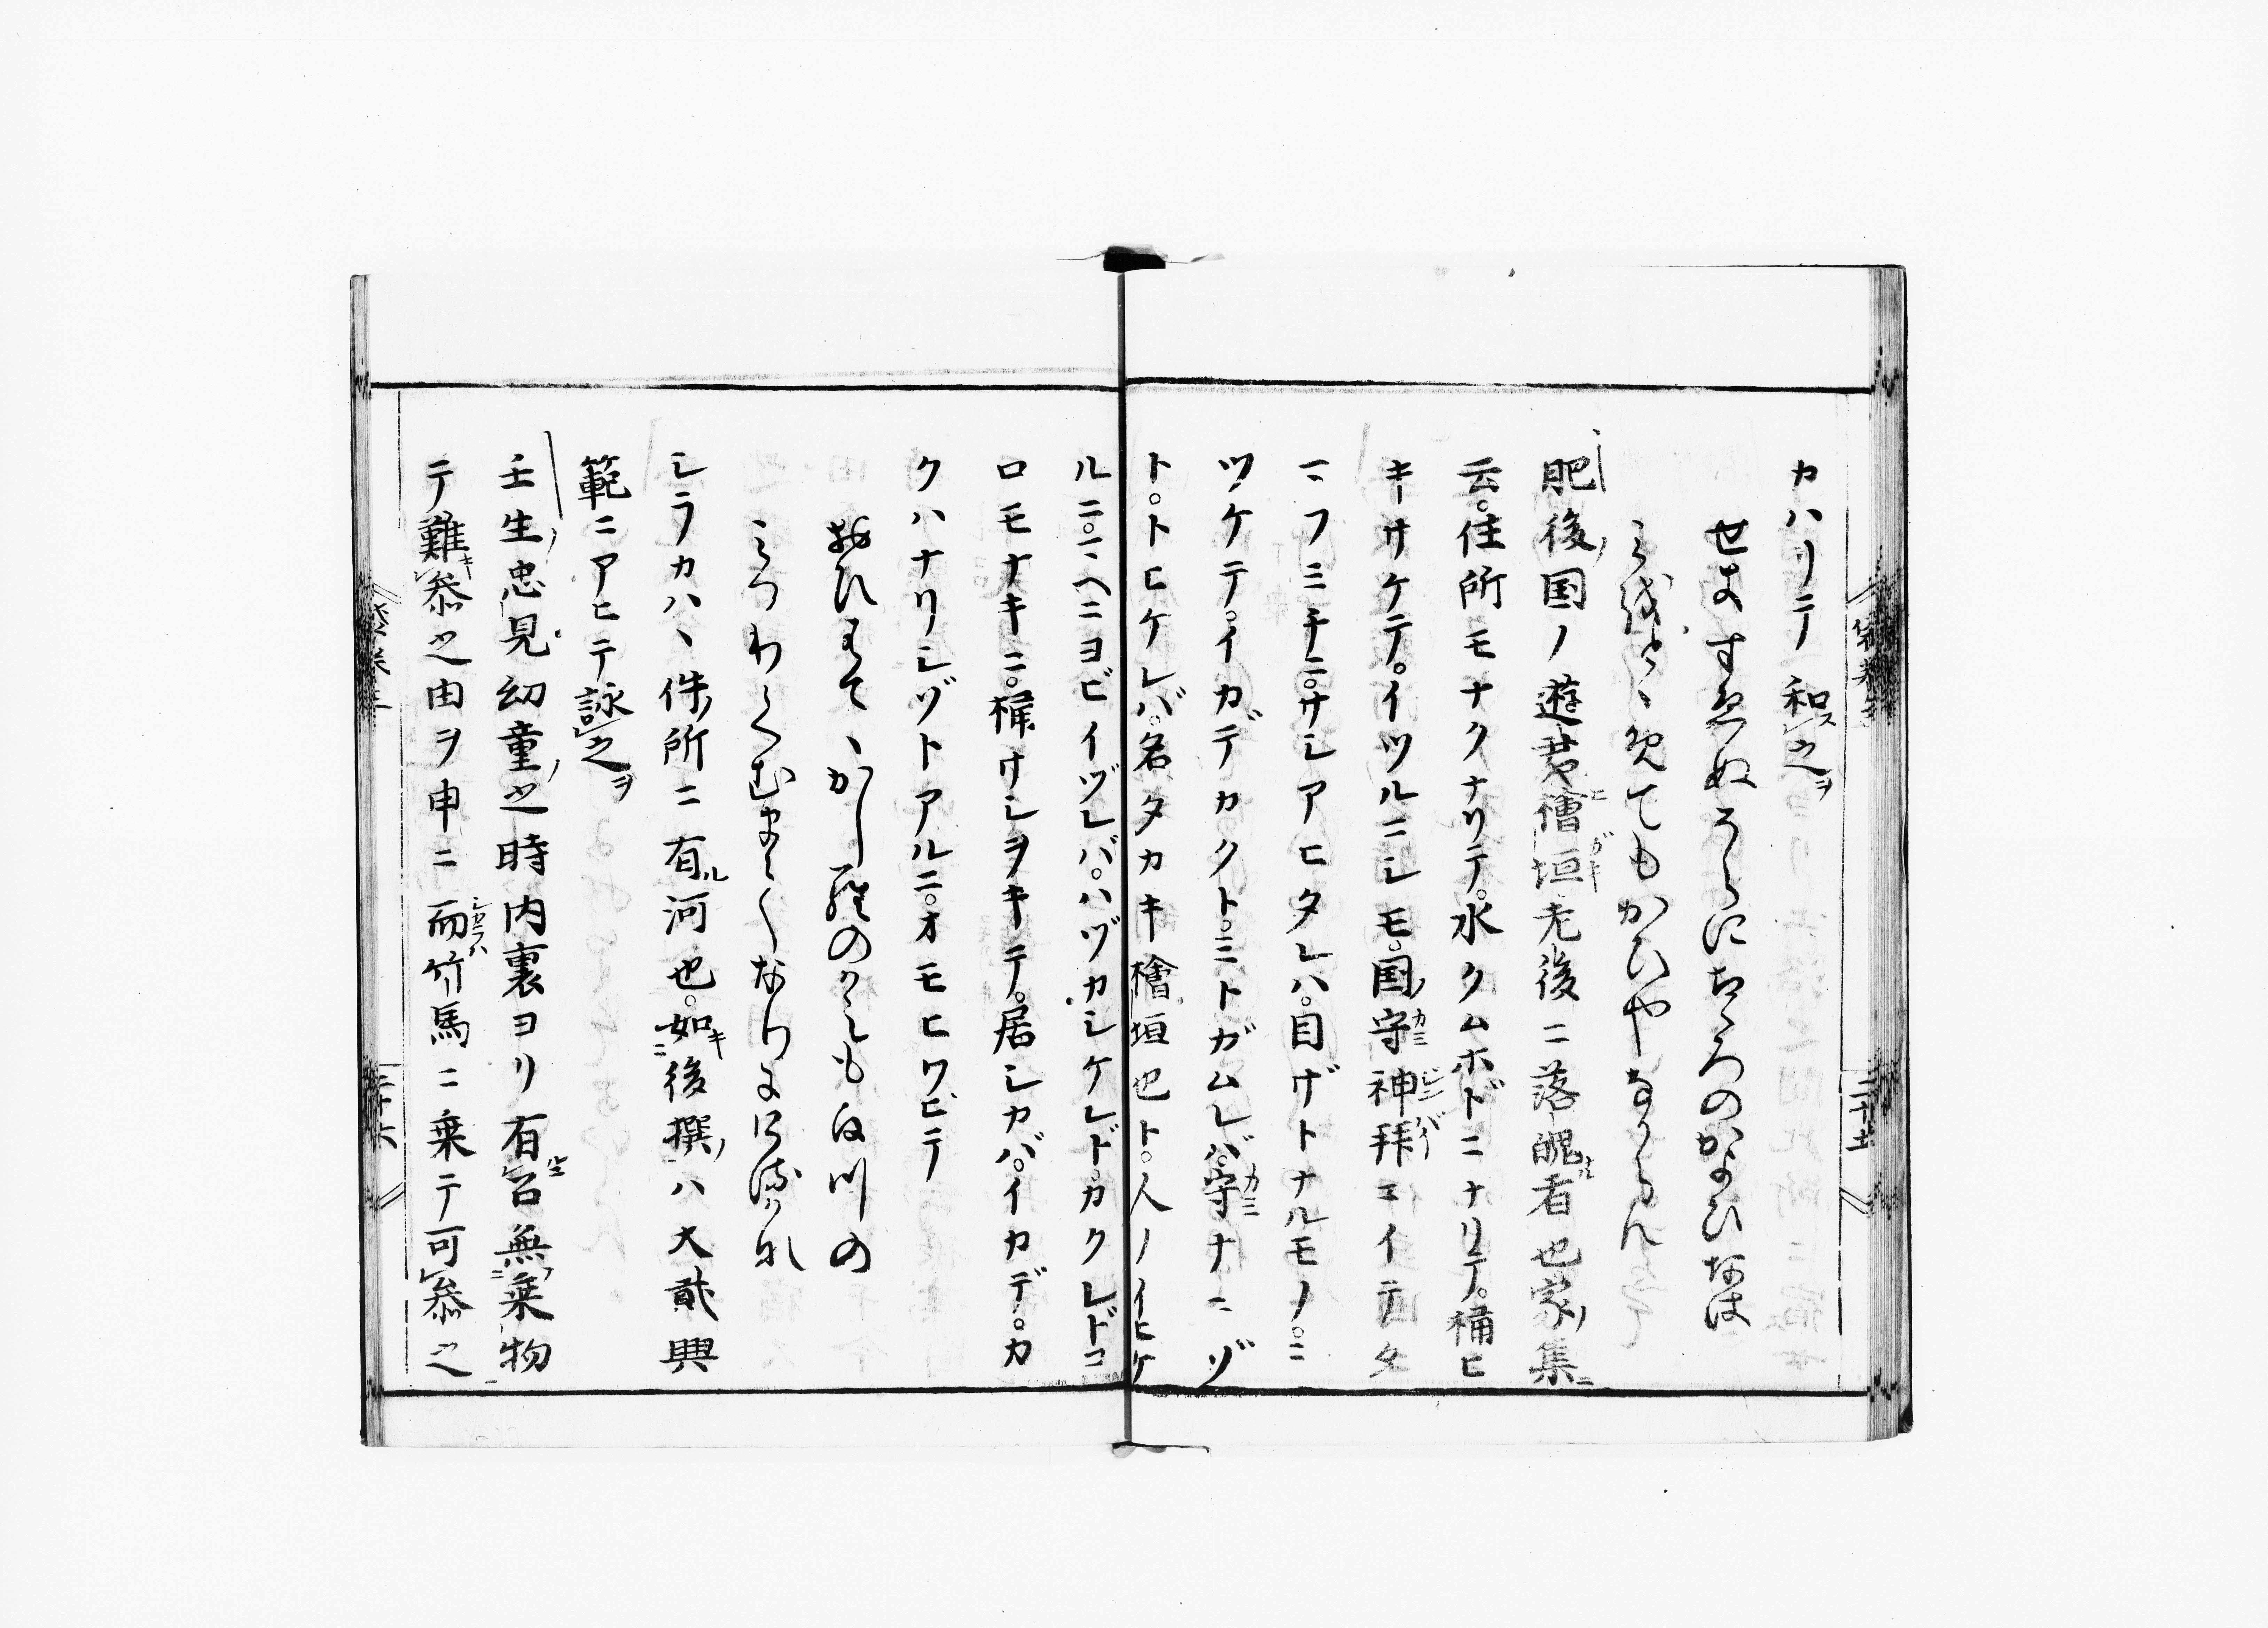 カハリテ和ス之ヲ
せきすゑぬそらにこゝろのかよひなは
みをとゝめてもかひやなからん
肥後ノ国ノ遊君檜垣老後ニ落魄者也家ノ集ニ
云。住所モナクナリテ。水クムホドニナリテ。桶ヒ
キサケテ。イツルニシモ。国ノ守神拝ニイテタ
マフミチニ。サシアヒタレハ。目ゲトナルモノ。ニ
ツケテ。イカデカクト。ミトガムレバ。守ナニゾ
ト。トヒケレバ。名タカキ檜垣也ト。人ノイヒケ
ルニ。マヘニヨビイヅレバ。ハヅカシケレドカクレドコ
ロモナキニ。桶サシヲキテ。居シカバ。イカデ。カ
クハナリシゾトアルニ。オモヒワビテ
おひはてゝかしらのかみもしら川の
みつわくむまてなりにけるかな
シラカハヽ件ノ所ニ有ル河也。如キ後撰ノニハ大貮興
範ニアヒテ詠之ヲ
壬生ノ忠見幼童ノ之時内裏ヨリ有召無乗物
テ難キ参之由ヲ申ニ而竹馬ニ乗テ可参之
袋巻三
三十六